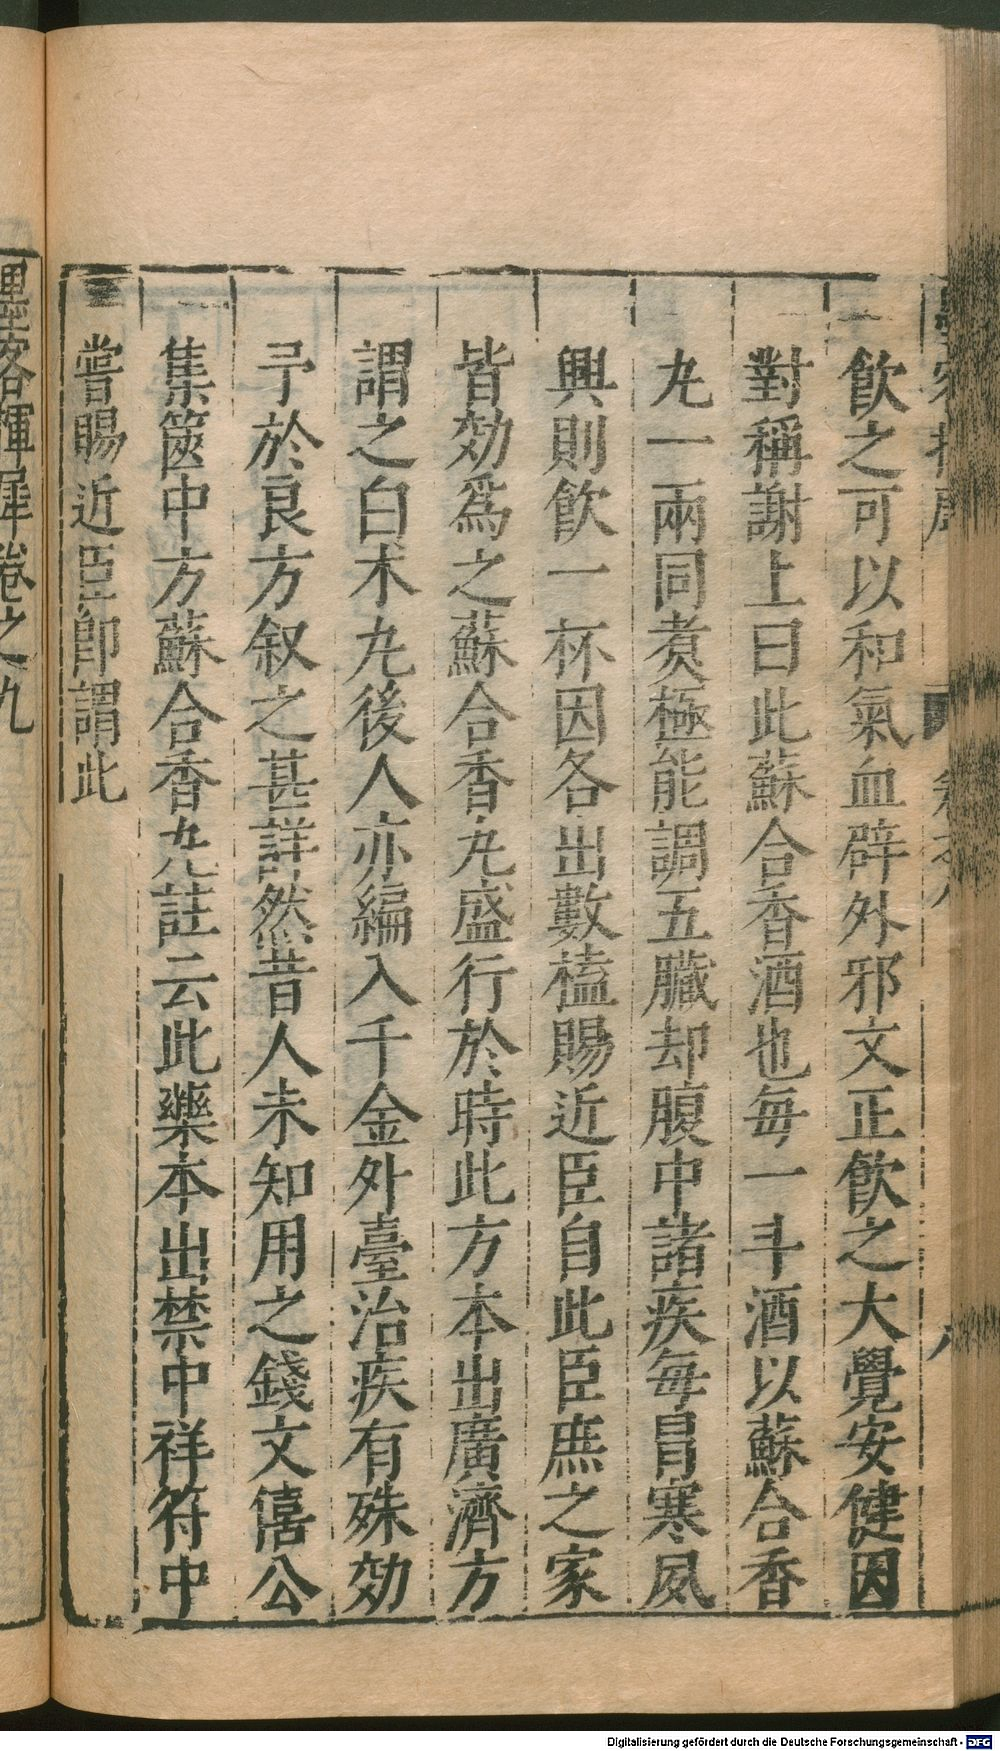 飲之可以和氣血辟外邪文正飲之大覺安健因
對稱謝上曰此蘇合香酒也每一斗酒以蘇合香
九一兩同煮極能調五臟却腹中諸疾每冒寒夙
興則飲一杯因各出數榼賜近臣自此臣庶之家
皆効爲之蘇合香九盛行於時此方本出廣濟方
謂之白术九後人亦編入千金外臺治疾有殊効
予於良方叙之甚詳然昔人未知用之錢文僖公
集篋中方蘇合香九註云此藥本出禁中祥符中
嘗賜近臣卽謂此
墨客揮犀卷之九
Digitalisierung gefördert durch die Deutsche Forschungsgemeinschaft - DFG